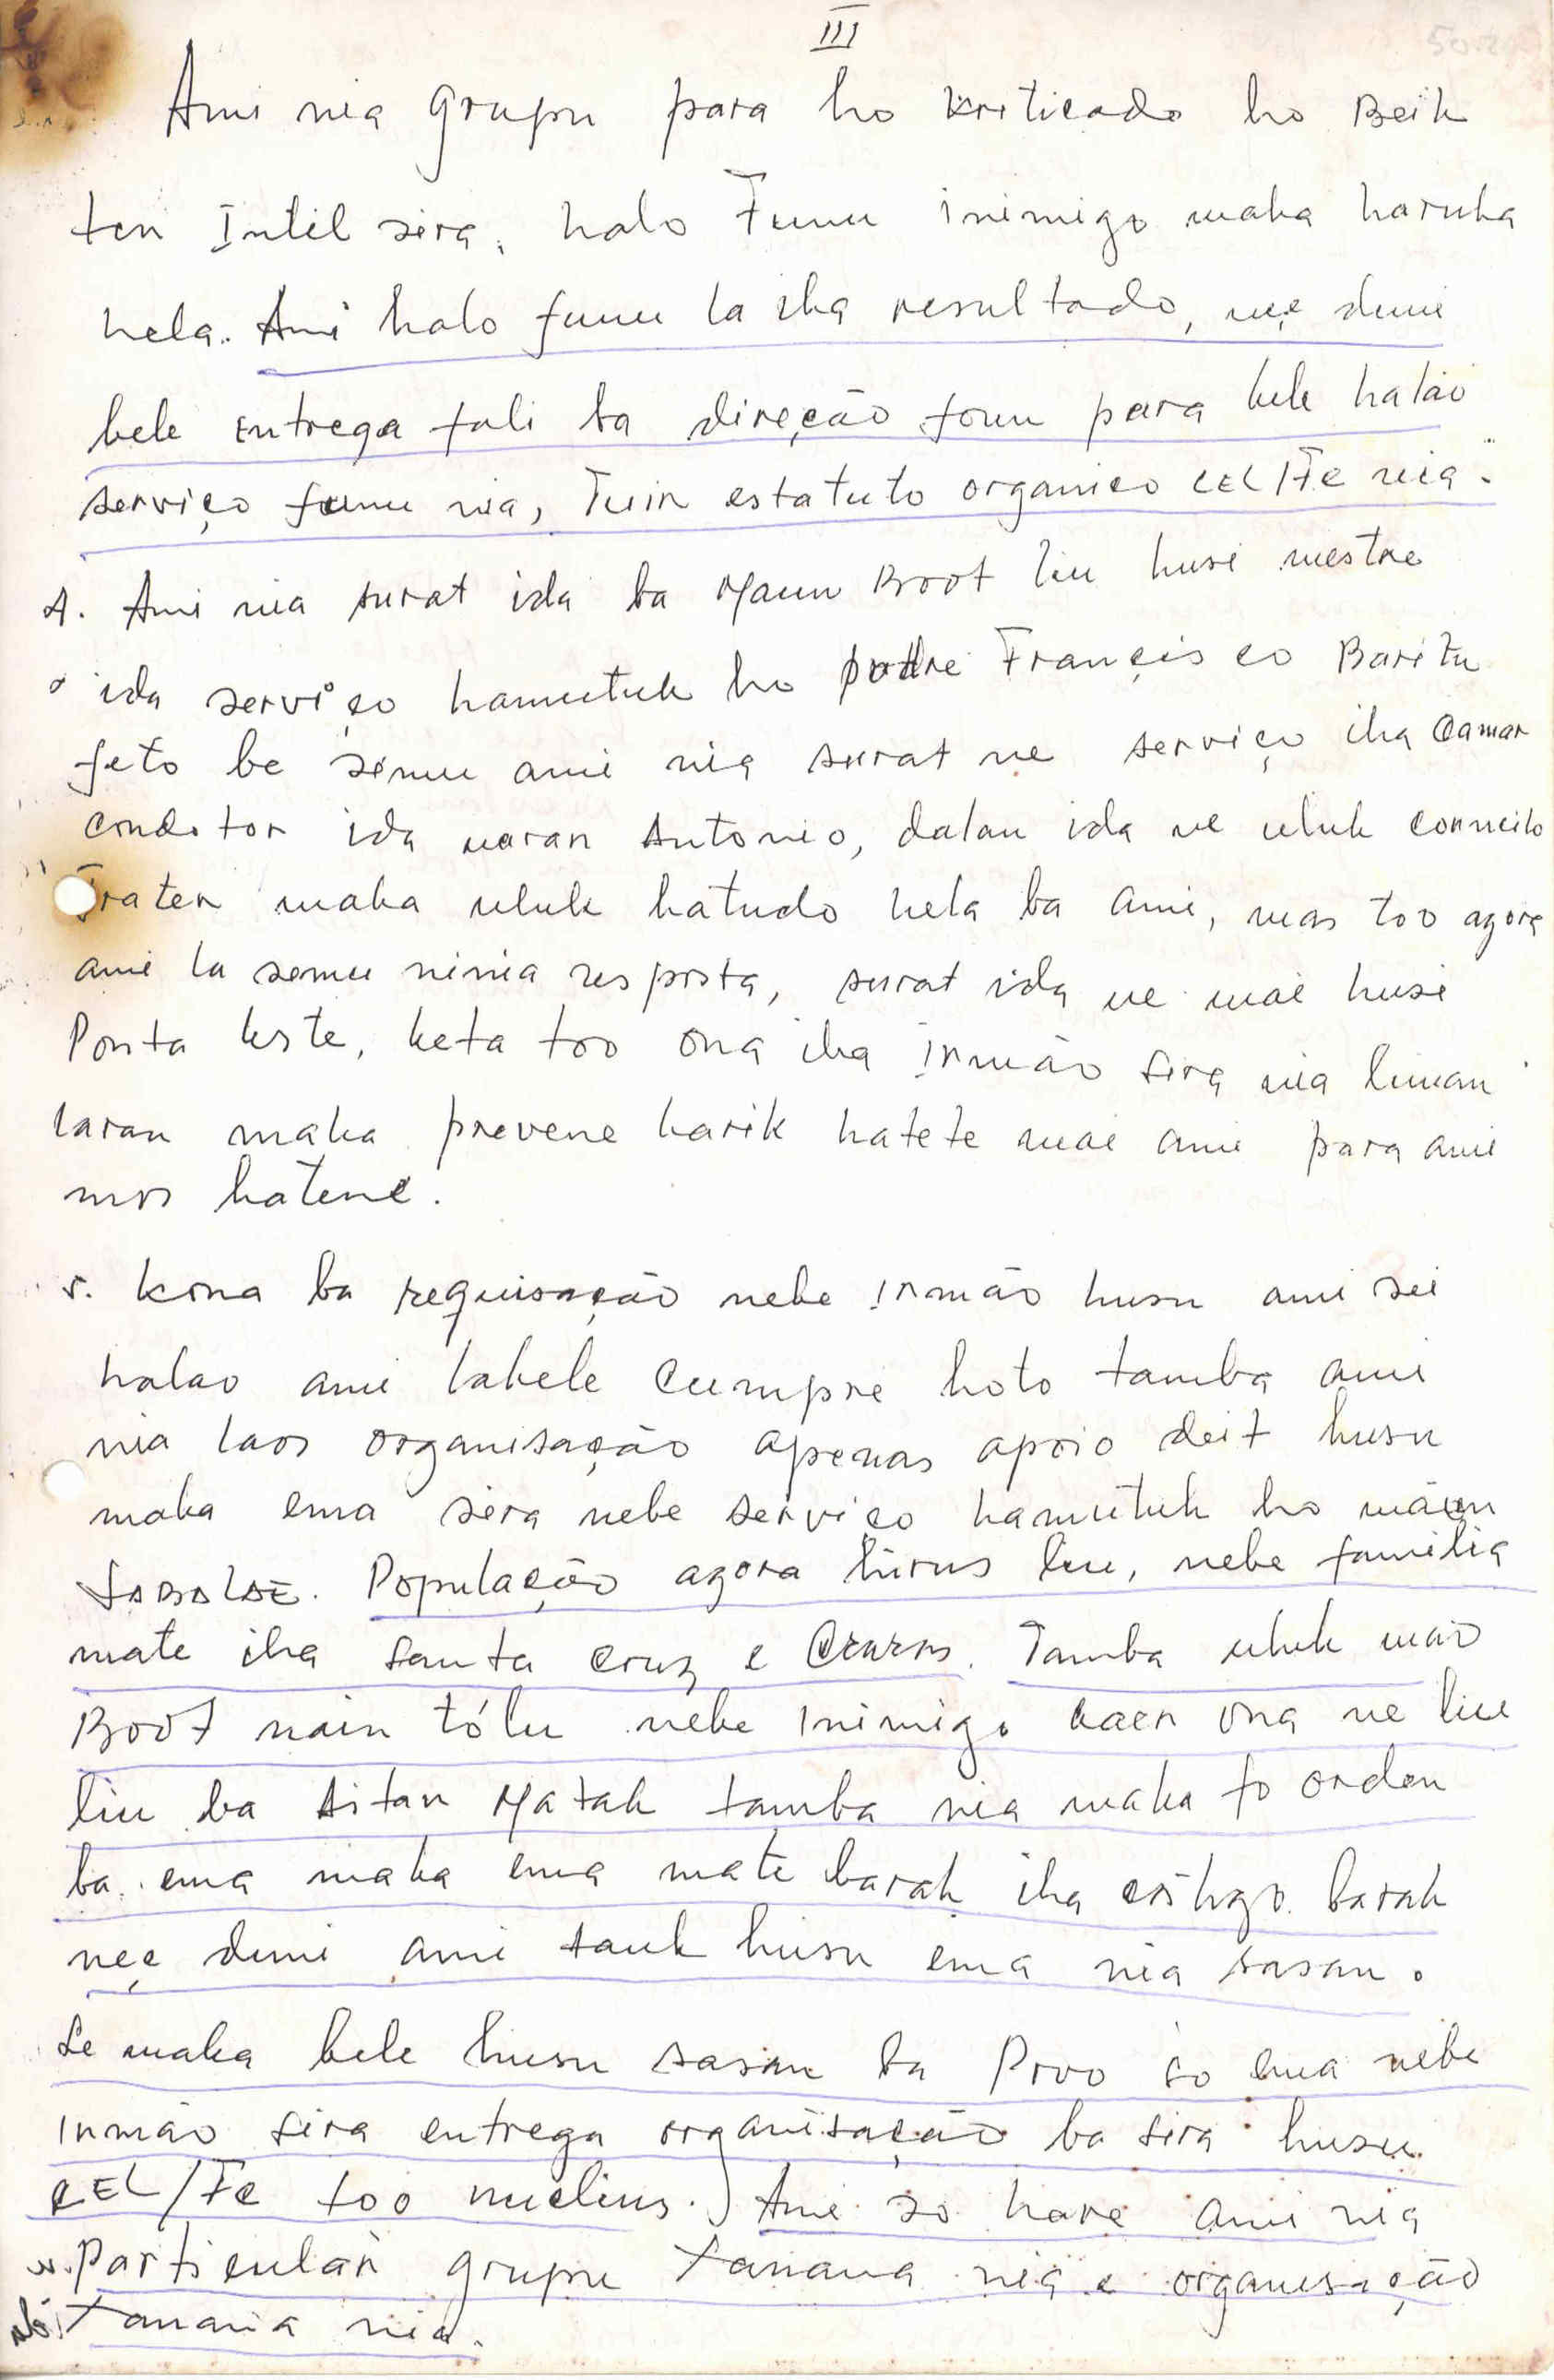 III
Ami nia grupu para ho kriticado ho Beik
ten Intel sira, halo Funu inimigo maka haruka
hela. Ami halo funu la iha resultado, neé duni
bele entrega fali ba direção foun para bele halão
serviço funu nia, Tuir estatuto organico CEL/Fe nia.
4. Ami nia surat ida ba Maun Boot liu husi mestre
ida serviço hamutuk ho padre Francisco Baritu
feto be simu ami nia surat ne serviço iha Camar
condotor ida naran Antonio, dalan ida ne uluk conncilo
Traten maka uluk hatudo hela ba ami, mas too agora
ami la semu ninia resposta, surat ida ne mai husi
Ponta leste, keta too ona iha inmão sira nia liman
laran maka prevene karik hatete mai ami para ami
mos hatene.
5. kona ba requisação nebe inmão husu ami sei
halao ami labele cumpre hoto tamba ami
nia laos organisação apenas apoio deit husu
maka ema sira nebe serviço hamutuk ho máun
SABALAE. População agora hirus liu, nebe familia
mate iha Santa Cruz e Craras. Tamba uluk mao
Boot nain tólu nebe inimigo kaer ona ne liu
liu ba Aitan Matak tamba nia maka fo orden
ba ema maka ema mate barak iha castigo barak
neé duni ami tauk husu ema nia sasan.
Se maka bele husu sasan ba Povo so ema nebe
inmão sira entrega organisação ba sira husu
CEL/Fe too nuclius. Ami so hare ami nia
Particular grupu Xanana nia e organisação
Xanana nia.